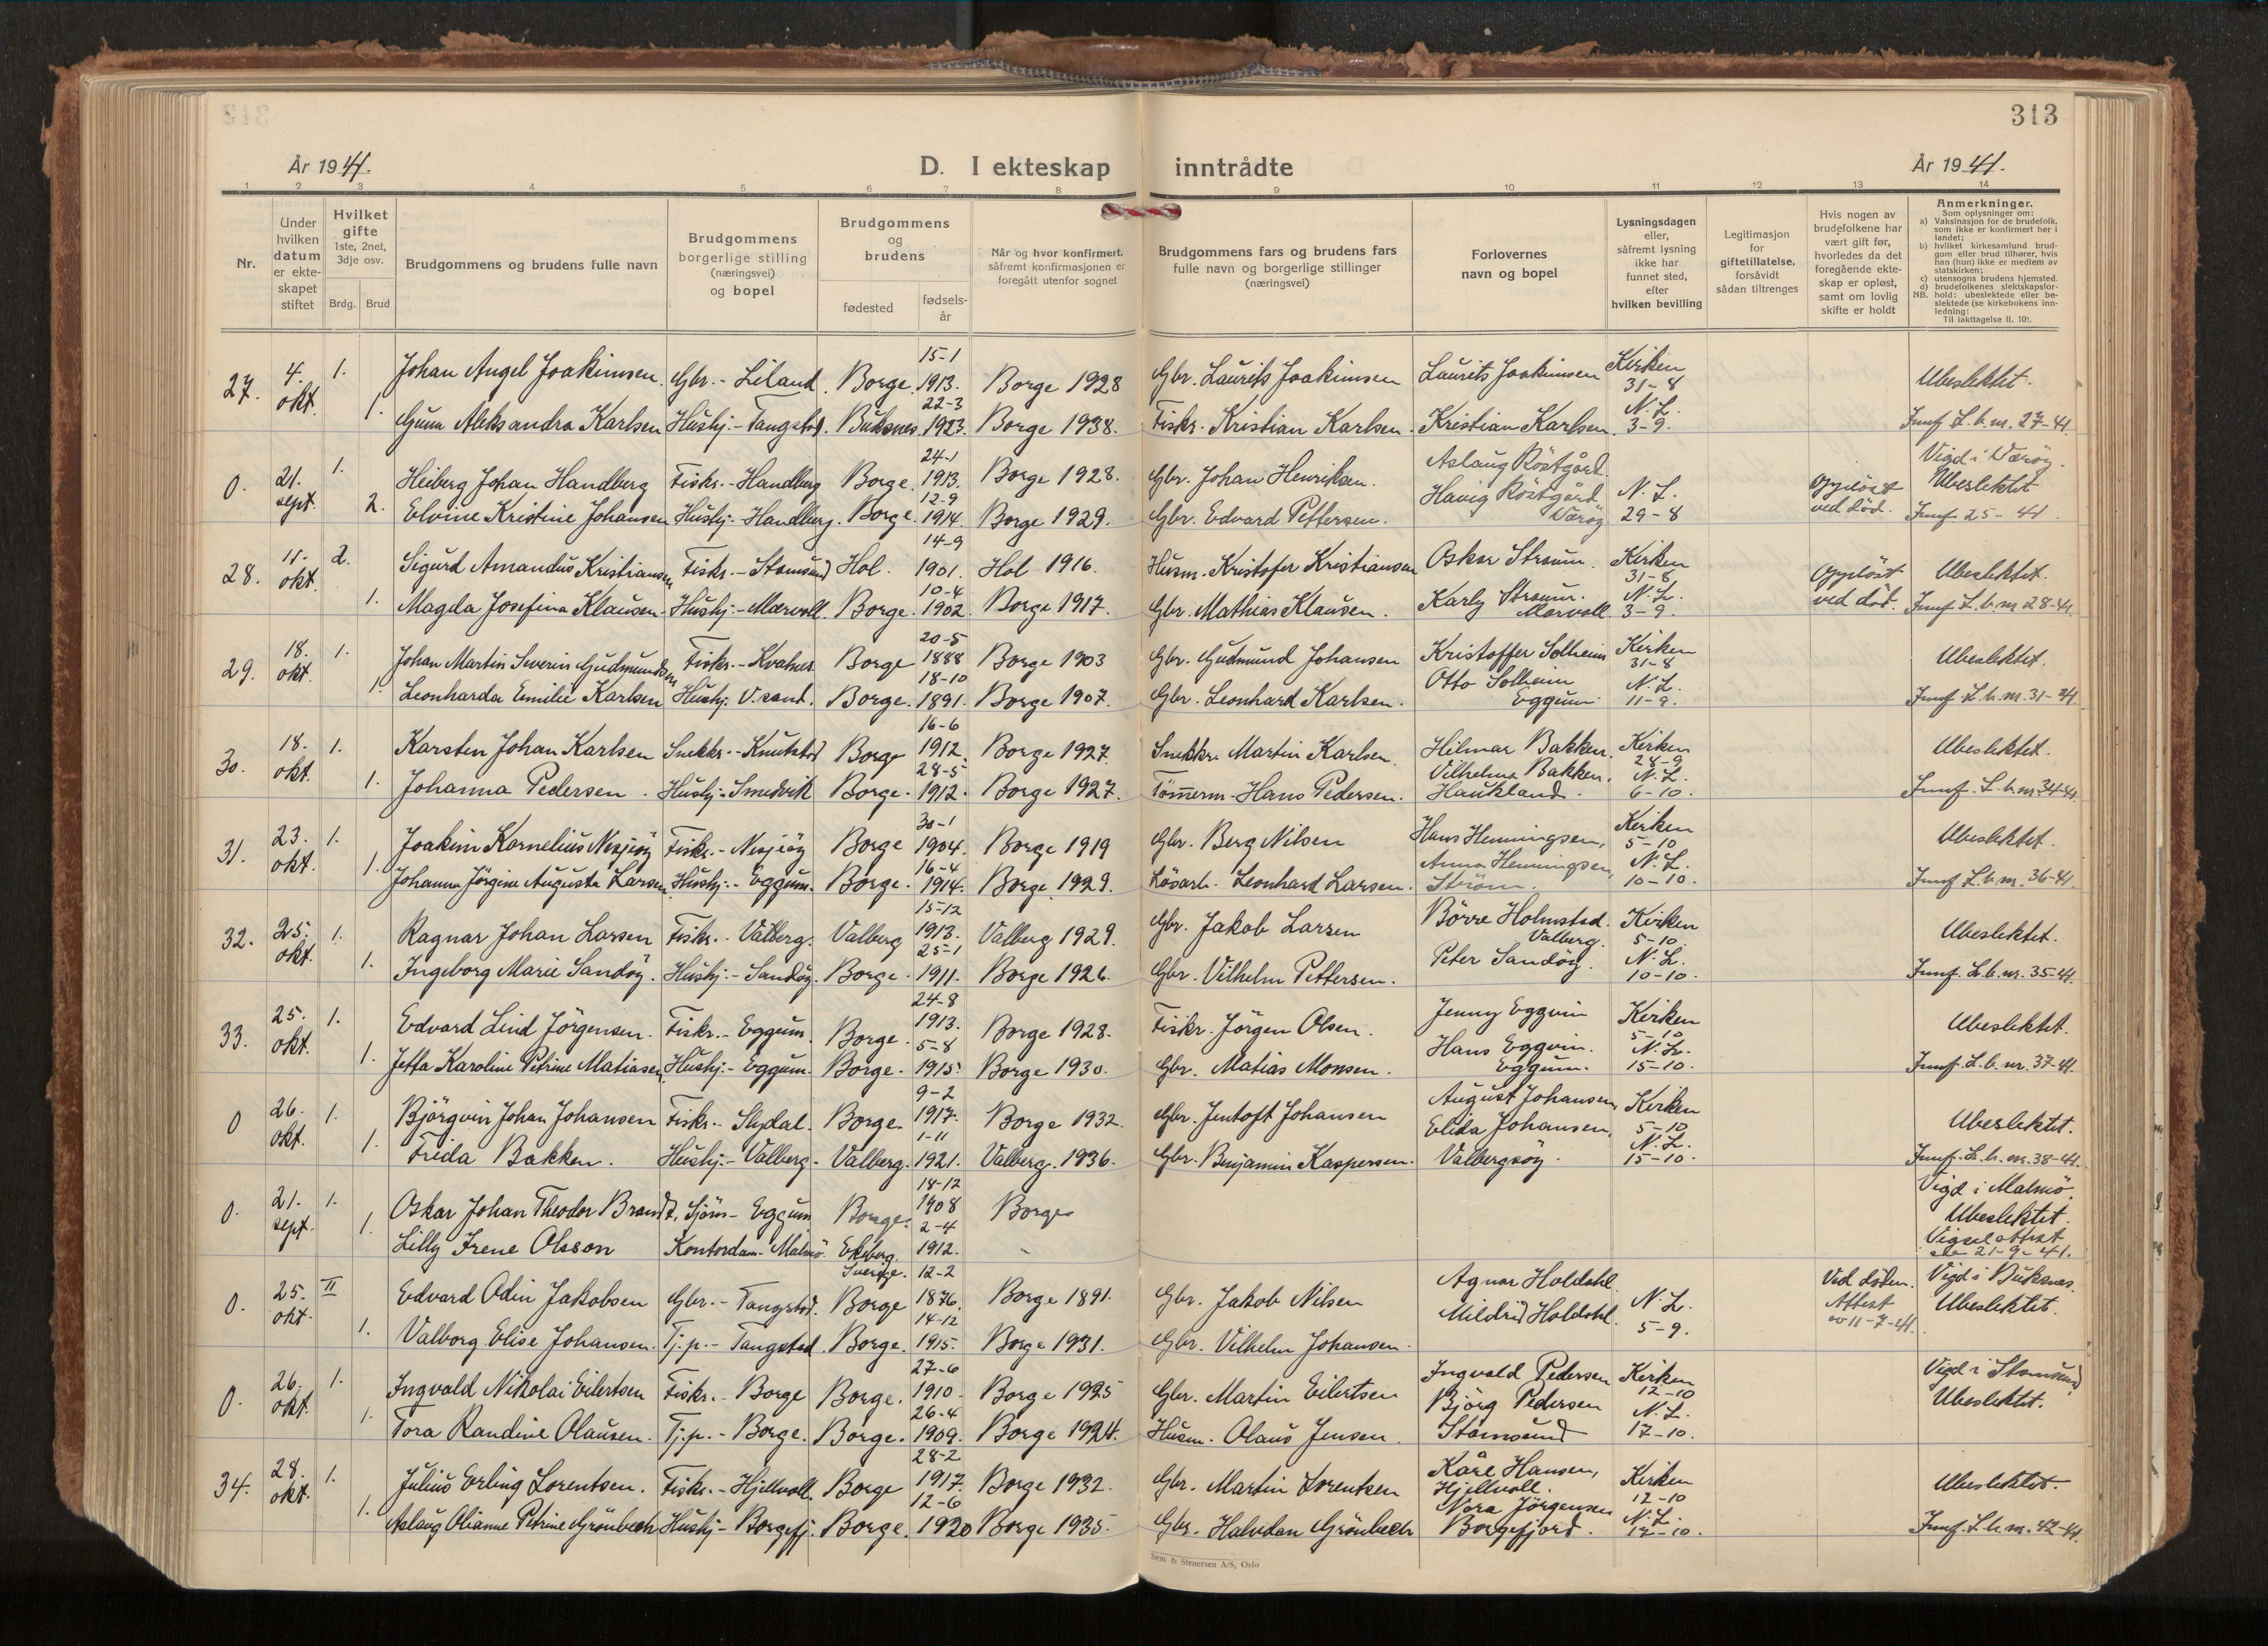 313
År 1941.
D. I ekteskap inntrådte
År 1941.
1 2 3 4 5 6 7 8 9 10 11 12 13 14
Nr.
Under hvilken datum er ekte-skapet stiftet
Hvilket gifte 1ste, 2net, 3dje osv.
Brdg. Brud
Brudgommens og brudens fulle navn
Brudgommens borgerlige stilling (næringsvei) og bopel
Brudgommens og brudens
fødested
fødsels-år
Når og hvor konfirmert, såfremt konfirmasjonen er foregått utenfor sognet
Brudgommens fars og brudens fars fulle navn og borgerlige stillinger (næringsvei)
Forlovernes navn og bopel
Lysningsdagen eller, såfremt lysning ikke har funnet sted, efter hvilken bevilling
Legitimasjon for giftetillatelse, forsåvidt sådan tiltrenges
Hvis nogen av brudefolkene har vært gift før, hvorledes da det foregående ekte-skap er opløst, samt om lovlig skifte er holdt
Anmerkninger.
Som oplysninger om:
a) Vaksinasjon for de brudefolk, som ikke er konfirmert her i landet;
b) hvilket kirkesamfund brud-gom eller brud tilhører, hvis han (hun) ikke er medlem av statskirken;
c) utensogns brudens hjemsted.
d) brudefolkenes slektskapsfor-hold: ubeslektede eller be-slektede (se kirkebokens inn-ledning:
NB. Til iakttagelse II. 10).
27. 4. okt. 1. Johan Angel Joakimsen. Gbr. - Liland. Borge. 15-1 1913. Borge 1928 Gbr. Laurits Joakimsen Laurits Joakimsen Kirken 31-8 Ubeslektet.
1. Gunn Aleksandra Karlsen Hushj. - Tangstad. Buksnes. 22-3 1923. Borge 1938. Fiskr. Kristian Karlsen. Kristian Karlsen. N. L. 3-9. Jmnf L. b. nr. 27-41.
0. 21. sept. 1. Heiberg Johan Handberg Fiskr. - Handberg Borge. 24-1 1913. Borge 1928. Gbr. Johan Henriksen. Aslaug Röstgård Vigd i Værøy.
2. Elvine Kristine Johansen Hushj. - Handberg. Borge. 12-9 1914. Borge 1929. Gbr. Edvard Pettersen. Röstgård Værøy N. L. 29-8 Oppløst ved død. Ubeslektet Jmnf 25-41
28. 11. okt. 2. Sigurd Amandus Kristiansen Fiskr. - Stamsund Hol. 14-9 1901. Hol 1916. Husm. Kristofer Kristiansen Oskar Straum. Kirken 31-8 Oppløst ved død. Ubeslektet.
1. Magda Josefina Klausen. Hushj. - Mærvoll. Borge. 10-4 1902. Borge 1917. Gbr. Mathias Klausen. Karly Straum. Mærvoll. N. L. 3-9. Jmnf L. b. nr 28-41.
29. 18. okt. 1. Johan Martin Severin Gudmundsen Fiskr. - Kvalnes. Borge 20-5 1888 Borge 1903 Gbr. Gudmund Johansen Kristoffer Solheim Kirken 31-8 Ubeslektet.
1. Leonharda Emilie Karlsen Hushj. V. sand. Borge. 18-10 1891. Borge 1907. Gbr. Leonhard Karlsen. Otto Solheim Eggum N. L. 11-9. Jmnf. L. b. nr. 31-41
30. 18. okt. 1. Karsten Johan Karlsen Snekkr. - Knutstad Borge 16-6 1912. Borge 1927. Snekkr. Martin Karlsen. Hilmar Bakken. Kirken 28-9 Ubeslektet.
1. Johanna Pedersen. Hushj. - Smedvik Borge. 28-5 1912. Borge 1927. Tømmerm. Hans Pedersen. Vilhelma Bakken. Haukland. N. L. 6-10. Jmnf. L. b. nr. 34-41.
31. 23. okt. 1. Joakim Kornelius Nesjeöy Fiskr. - Nesjeöy Borge 30-1 1904. Borge 1919 Gbr. Berg Nilsen Hans Henningsen, Kirken 5-10 Ubeslektet.
1. Johanna Jörgine Augusta Larsen Hushj. - Eggum. Borge. 16-4 1914. Borge 1929. Lösarb. Leonhard Larsen. Anna Henningsen, Ström. N. L. 10-10. Jmnf L. b. nr. 36-41.
32. 25. okt. 1. Ragnar Johan Larsen Fiskr. - Valberg. Valberg 15-12 1913. Valberg 1929. Gbr. Jakob Larsen Börre Holmstad. Valberg. Kirken 5-10 Ubeslektet.
1. Ingeborg Marie Sandöy. Hushj. - Sandöy. Borge. 25-1 1911. Borge 1926. Gbr. Vilhelm Pettersen. Peter Sandöy. N. L. 10-10. Jmnf. L. b. nr. 35-41.
33. 25. okt. 1. Edvard Lind Jörgensen. Fiskr. - Eggum. Borge. 24-8 1913. Borge 1928. Fiskr. Jörgen Olsen. Jenny Eggvin Kirken 5-10 Ubeslektet.
1. Jetta Karoline Petrine Matiasen. Hushj. - Eggum. Borge. 5-8 1915. Borge 1930. Gbr. Matias Monsen. Hans Eggvin. Eggum. N. L. 15-10. Jmnf. L. b. nr. 37-41.
0 26. okt. 1. Björgvin Johan Johansen Fiskr. - Slydal. Borge. 9-2 1917. Borge 1932. Gbr. Jentoft Johansen August Johansen, Kirken 5-10 Ubeslektet.
1. Frida Bakken. Hushj. - Valberg. Valberg. 1-11 1921. Valberg. 1936. Gbr. Benjamin Kaspersen. Elida Johansen, Valbergsöy. N. L. 15-10. Jmnf. L. b. nr. 38-41.
0. 21. sept. 1. Oskar Johan Theodor Brandt, Sjöm - Eggum Borge. 18-12 1908 Borge Vigd i Malmö. Ubeslektet.
1. Lilly Irene Olsson Kontordam - Malmö Ekeberg. Sverige. 2-4 1912. Vigselattest 21-9-41.
0. 25. okt. II Edvard Odin Jakobsen Gbr. - Tangstad. Borge 12-2 1876. Borge 1891. Gbr. Jakob Nilsen Agnar Holdahl Ved döden. Attest av 11-7-41. Vigd i Buksnes.
1. Valborg Elise Johansen. Tj. p. - Tangstad. Borge. 14-12 1915. Borge 1931. Gbr. Vilhelm Johansen. Mildrid Holdahl. N. L. 5-9. Ubeslektet.
0. 26. okt. 1. Ingvald Nikolai Eilertsen Fiskr. - Borge Borge. 27-6 1910 Borge 1925 Gbr. Martin Eilertsen Ingvald Pedersen Kirken 12-10 Vigd i Stamsund
1. Tora Randine Olausen. Tj. p. - Borge. Borge. 26-4 1909. Borge 1924. Husm. Olaus Jensen. Björg Pedersen Stamsund N. L. 17-10. Ubeslektet.
34. 28. okt. 1. Julius Erling Lorentsen. Fiskr. - Hjellvoll. Borge 28-2 1917. Borge 1932. Gbr. Martin Lorentsen Kåre Hansen, Hjellvoll. Kirken 12-10 Ubeslektet.
1. Aslaug Olianne Petrine Grönbech Hushj - Borgefj. Borge. 12-6 1920 Borge 1935. Gbr. Halvdan Grönbech Nora Jörgensen Borgefjord. N. L. 17-10. Jmnf. L. b. nr. 42-41.
Sem & Stenersen A/S, Oslo